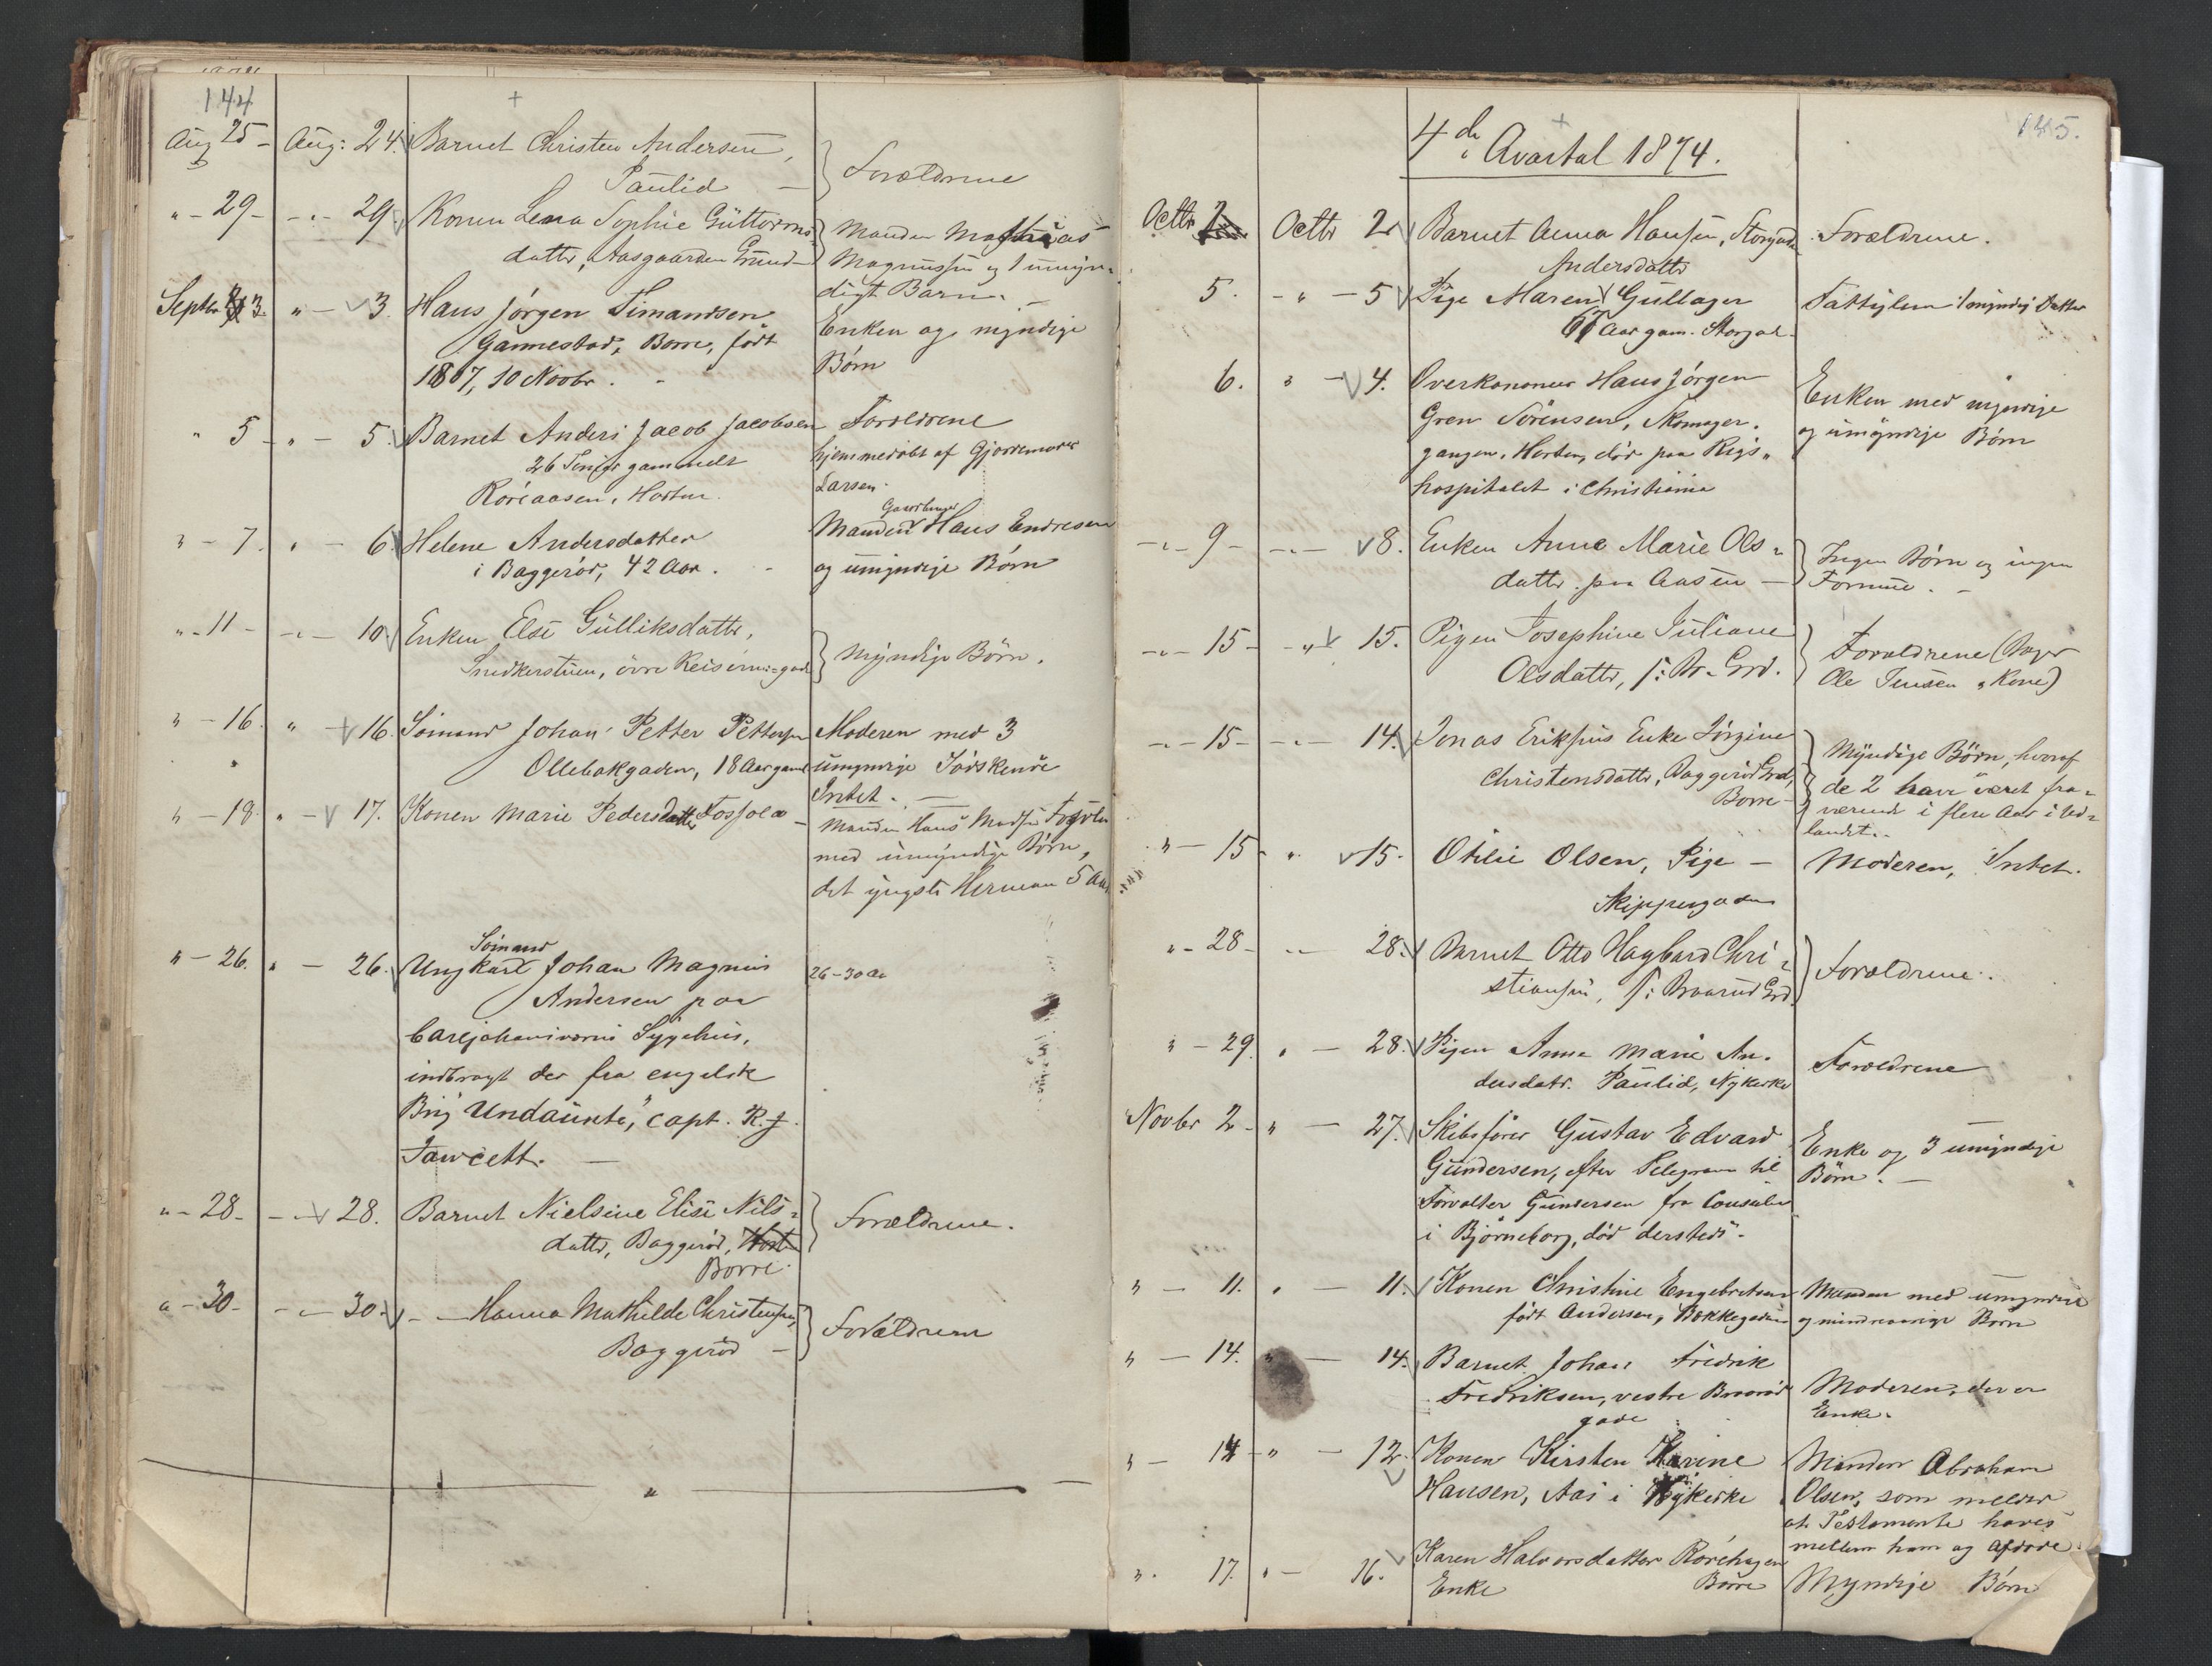 144
Aug 25 - Aug: 24. Barnet Christen Andersen,
Paulid - Forældrene
" - 29 - - " - 29. Konen Lena Sophie Guttorms-
datter, Aasgaarden Grund - Manden Mathias
Magnussen og 1 umyn-
digt Barn. -
Septbr 3. " - 3. Hans Jørgen Simandsen
Gannestad, Borre, født
1807, 10 Novbr. - Enken og myndige
Børn
" 5 - " - 5. Barnet Anders Jacob Jacobsen
26 Timer gammelt
Røreaasen, Horten. Forældrene
hjemmedøbt af Gjordemoder
Larsen.
" - 7. " - 6. Helene Andersdatter
i Baggerød, 42 Aar. - Gaardbruger
Manden Hans Endresen
og umyndige Børn
" - 11 - - " - 10. Enken Else Gulliksdatter,
Snedkerstuen, øvre Keiserensgade Myndige Børn.
" - 16. " - 16. Sømand Johan Petter Pettersen
Ollebakgaden, 18 Aar gaml Moderen med 3
umyndige Sødskende
Intet. -
" - 18. " - 17. Konen Marie Pedersdatter Fossola - Manden Hans Madsen
med umyndige Børn,
det yngste Herman 5 Aar
" - 26. " - 26. Sømand
Ungkarl Johan Magnus
Andersen paa
Carljohansværns Sygehus,
indbragt der fra engelsk
Brig "Undaunte", capt. R. J.
Fawcett. - 26-30 Aar
" - 28 - - " - 28. Barnet Nielsine Elise Nils-
datter, Baggerød,
Borre. Forældrene.
" - 30 - - " - 30. - - Hanna Mathilde Christensen,
Baggerød - Forældrene
"
145.
4de Qvartal 1874.
Octbr 2 Octbr 2 Barnet Anna Hansen, Storgaden Forældrene.
5. - " - 5 Pige Maren Andersdatter Gullager
67 Aar gam. Storgad. Fattiglem 1 myndig Datter
6. " - 4. Overkanoneer Hans Jørgen
Gren Sørensen, Skomager-
gangen, Horten, død paa Rigs-
hospitalet i Christiania Enken med myndige
og umyndige Børn
- " - 9 - - " - 8. Enken Anne Marie Ols-
datter paa Aasen - Ingen Børn og ingen
Formue. -
- " - 15 - - " - 15. Pigen Josephine Juliane
Olsdatter, Br. Grd. Forældrene (Bager
Ole Jensen & Kone)
- " - 15 - - " - 14. Jonas Eriksens Enke Jørgine
Christensdatter, Baggerød Grd,
Borre - Myndige Børn, hvoraf
de 2 have været fra-
værende i flere Aar i Ud-
landet. -
" - 15 - " - 15. Otilie Olsen, Pige -
Skippergaden Moderen, Intet.
" - 28 - - " - 28. Barnet Otto Hagbard Chri-
stiansen, Braarud Grd. Forældrene.
" - 29. " - 28. Pigen Anne Marie An-
dersdatr. Paulid, Nykirke Forældrene
Novbr 2 - " - 27. Skibsfører Gustav Edvard
Gundersen, efter Telegram til
Forvalter Gundersen fra Consulen
i Bjørneborg, død dersteds. - Enke og 3 umyndige
Børn. -
" - 11. " - 11. Konen Christine Engebretsen
født Andersen, Bakkegaden Manden med umyndige
og mindreaarige Børn
" - 14. " - 14. Barnet Johan Fredrik
Fredriksen, vestre Braarud
gade Moderen, der er
Enke.
" - 14 - " - 12. Konen Kirsten Karine
Hansen, Aas i Nykirke Manden Abraham
Olsen, som melder
at Testamente haves
mellem ham og Afdøde.
" - 17. " - 16. Karen Halvorsdatter Rørehagen
Enke Borre Myndige Børn